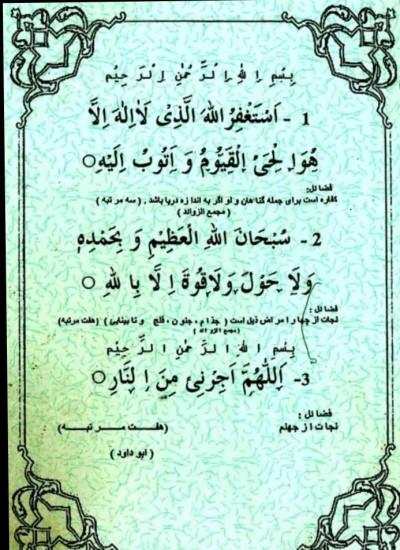 بِسْمِ اللهِ الرَّحْمٰنِ الرَّحِيْمِ
1 - اَسْتَغْفِرُ اللهَ الَّذِىْ لَا اِلٰهَ اِلَّا
هُوَ الْحَىُّ الْقَيُّوْمُ وَ اَتُوْبُ اِلَيْهِ ○
فضائل:
کفاره است برای جمله گناهان و لو اگر به اندازه دریا باشد . (سه مرتبه)
(مجمع الزوائد)
2 - سُبْحَانَ اللهِ الْعَظِيْمِ وَ بِحَمْدِهٖ
وَلَا حَوْلَ وَلَاقُوَّةَ اِلَّا بِاللهِ ○
فضائل:
نجات از چهار امراض ذیل است (جذام ، جنون ، فلج و نابینایی) (هفت مرتبه)
(مجمع الزوائد)
بِسْمِ اللهِ الرَّحْمٰنِ الرَّحِيْمِ
3- اَللّٰهُمَّ اَجِرْنِىْ مِنَ النَّارِ ○
فضائل:
نجات از جهنم (هفت مرتبه)
(ابو داود)